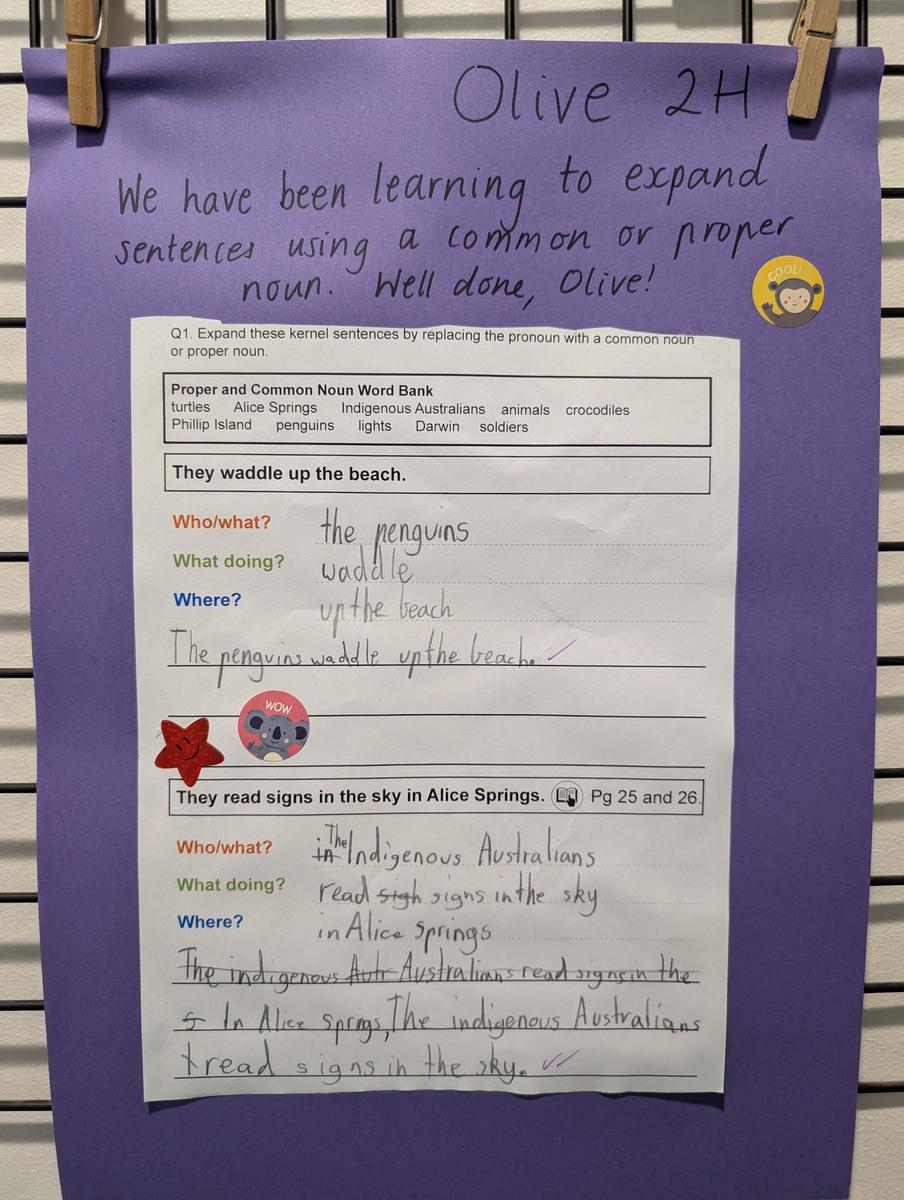 Olive 2H
We have been learning to expand
sentences using a common or proper
noun. Well done, Olive!
COOL!
Q1. Expand these kernel sentences by replacing the pronoun with a common noun
or proper noun.
Proper and Common Noun Word Bank
turtles Alice Springs Indigenous Australians animals crocodiles
Phillip Island penguins lights Darwin soldiers
They waddle up the beach.
Who/what? the penguins
What doing? waddle
Where? up the beach
The penguins waddle up the beach.
WOW
They read signs in the sky in Alice Springs. Pg 25 and 26.
Who/what? in The Indigenous Australians
What doing? read sigh signs in the sky
Where? in Alice springs
The indigenous Autr Australians read signs in the
s In Alice sprngs, The indigenous Australians
read signs in the sky.